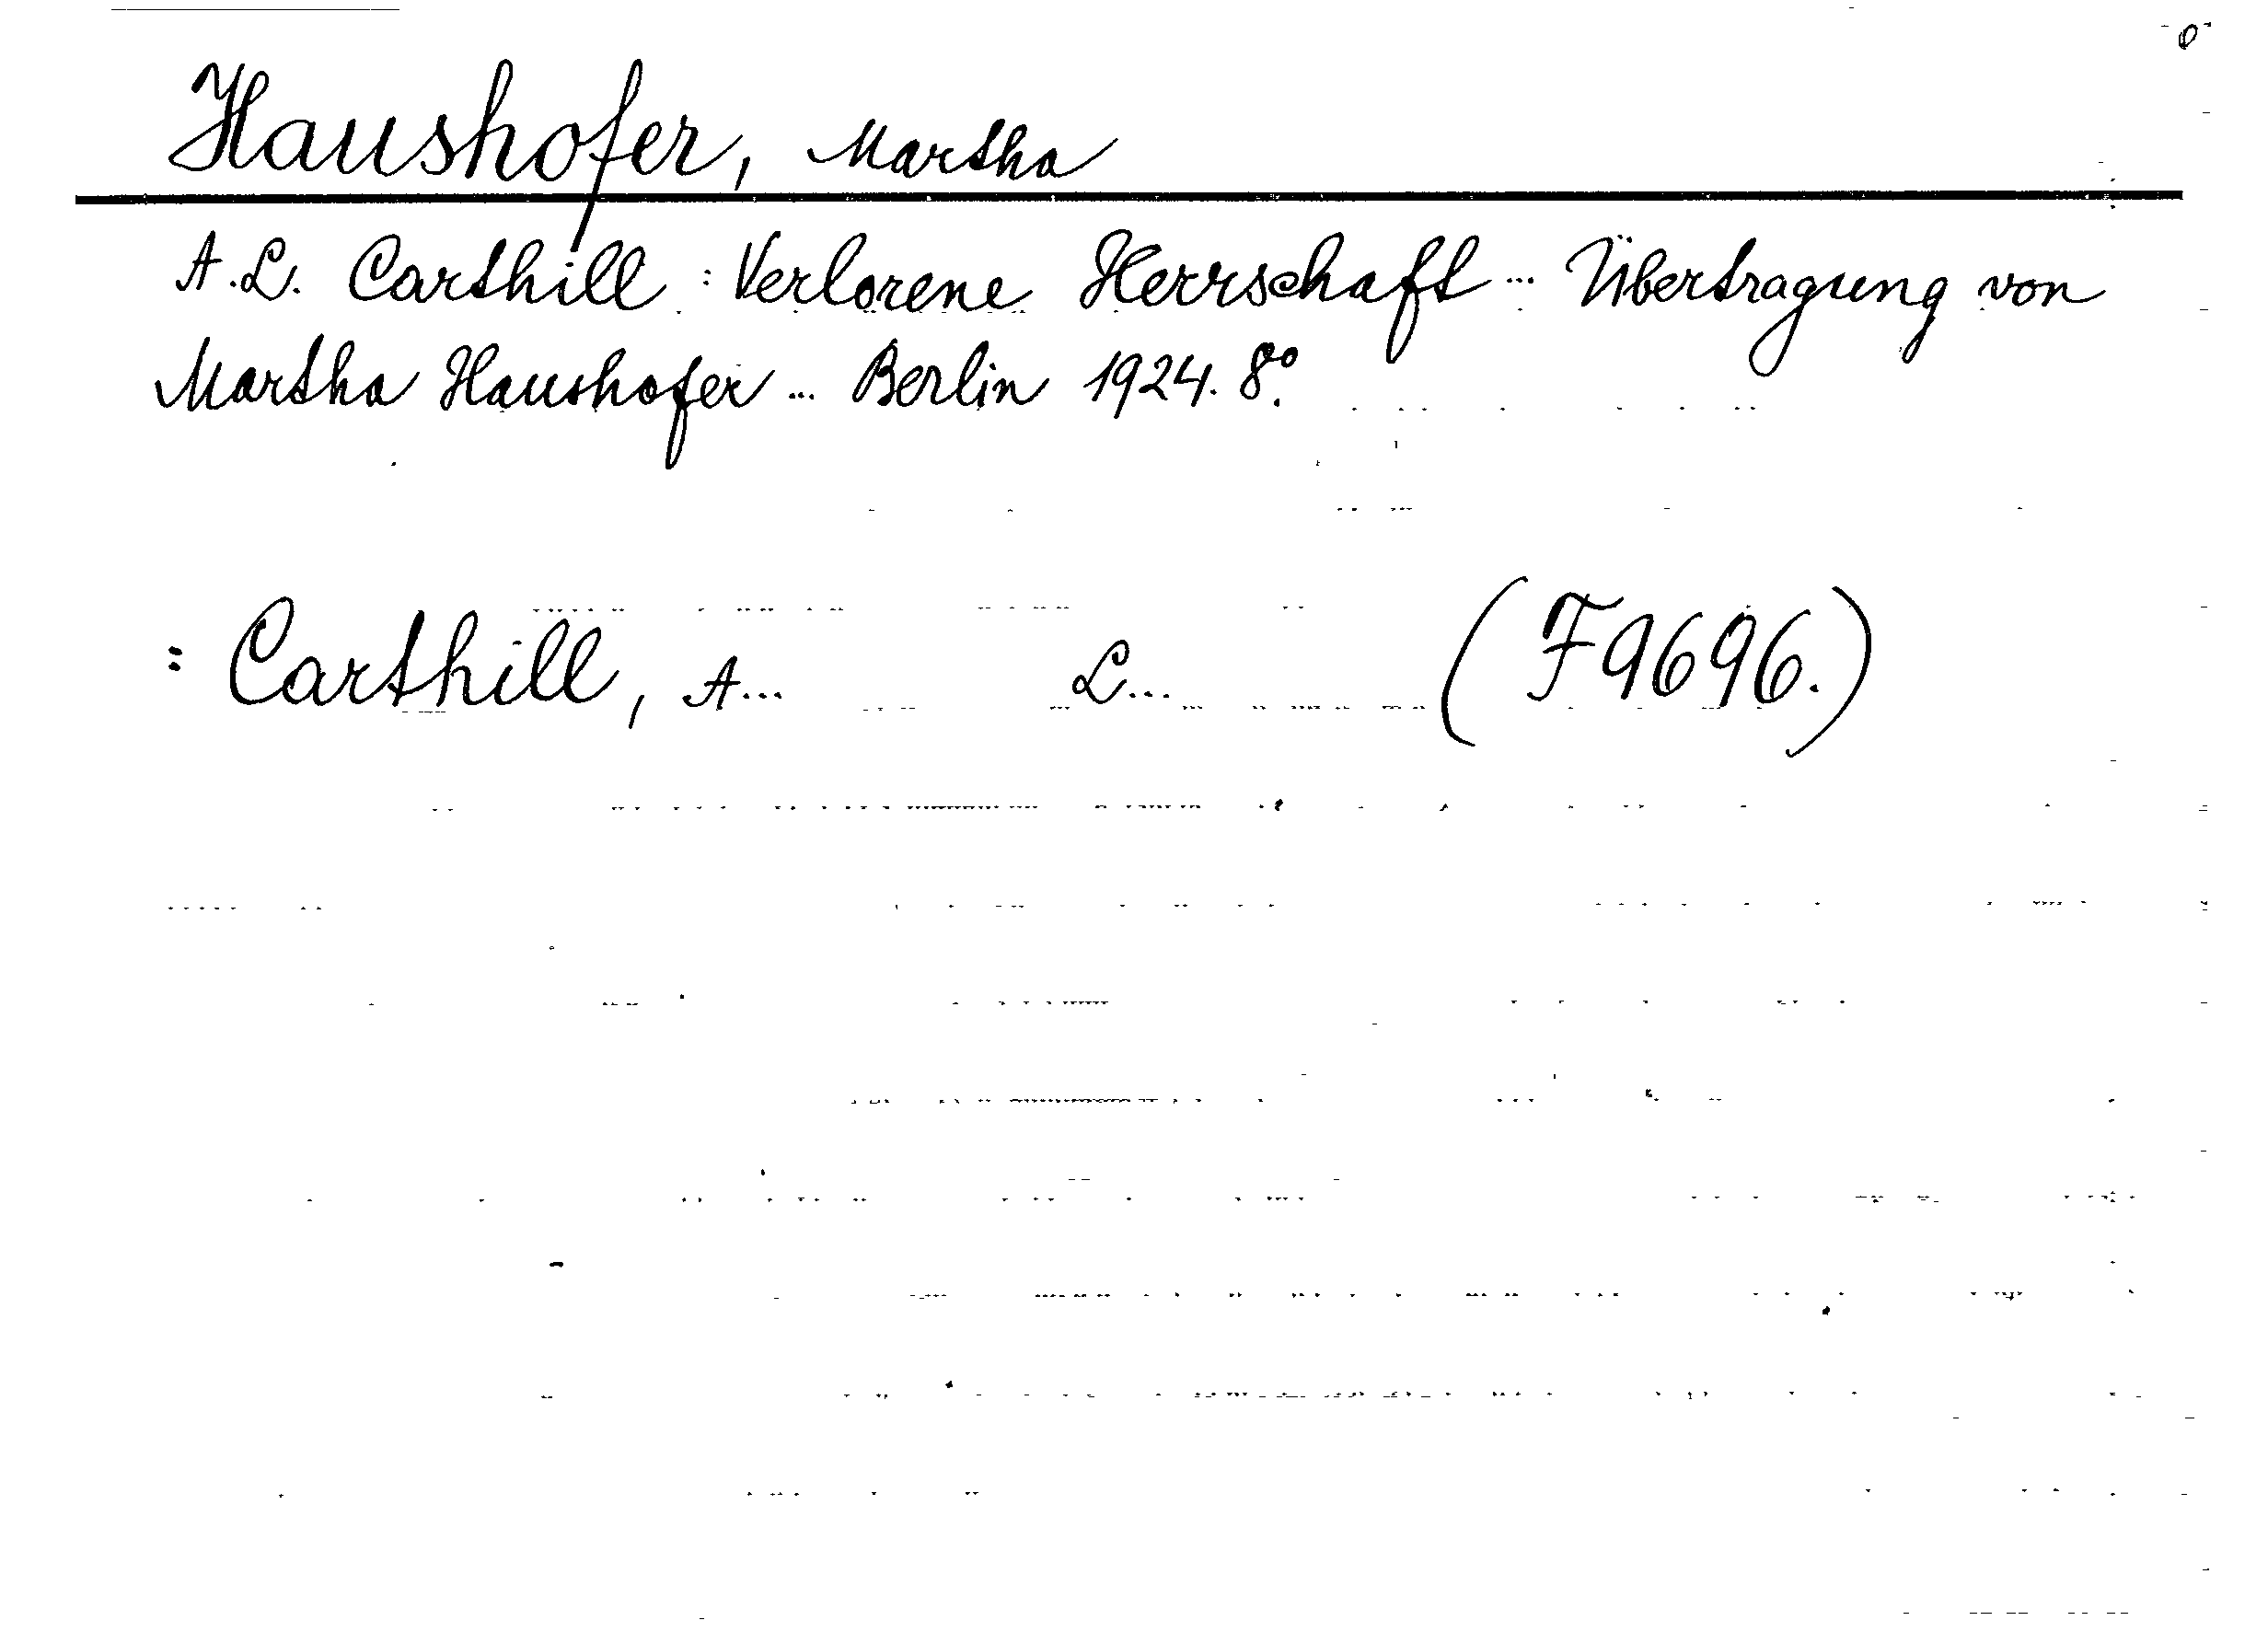 Haushofer, Martha
A.L. Carthill : Verlorene Herrschaft ... Übertragung von
Martha Haushofer ... Berlin 1924. 8°.
= Carthill, A... L... (F9696.)